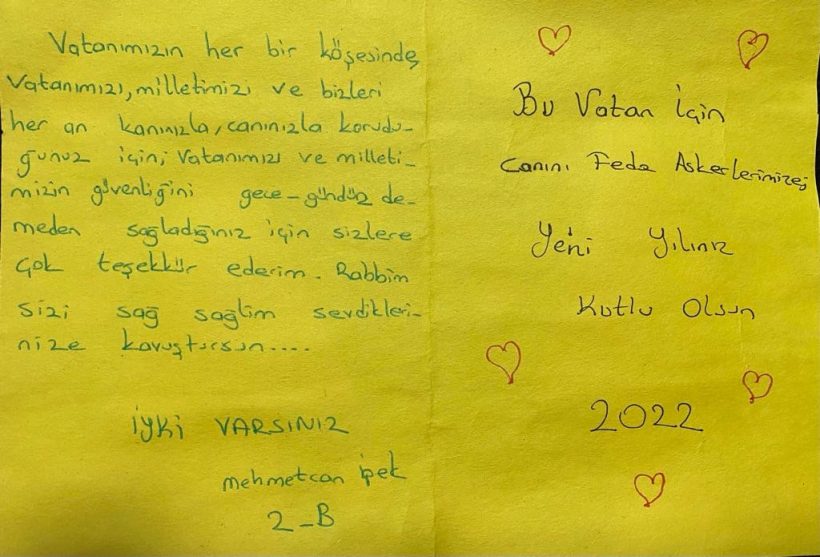 Vatanımızın her bir köşesinde,
Vatanımızı, milletimizi ve bizleri
her an kanınızla, canınızla korudu-
ğunuz için, Vatanımızı ve milleti-
mizin güvenliğini gece-gündüz de-
meden sağladığınız için sizlere
çok teşekkür ederim. Rabbim
sizi sağ sağlim sevdikleri-
nize kavuştursun....
İyki VARSINIZ
mehmetcan ipek
2-B
Bu Vatan İçin
Canını Feda Askerlerimize;
Yeni Yılınız
Kutlu Olsun
2022